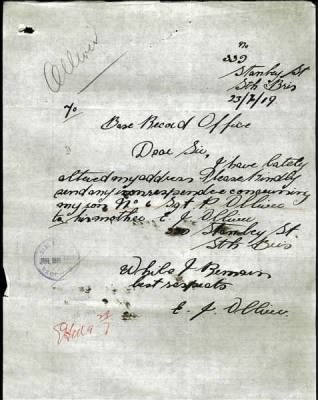 Olliver
No
339
Stanley St
Sth Bris
23/7/19
To
Base Record Office
Dear Sir,
I have lately
altered my address Please kindly
send any correspondence concerning
my son No 6 Sgt P. Olliver
to his mother E. J. Olliver
Stanley St
Sth Bris
While I Remain
last respects
E. J. Olliver.